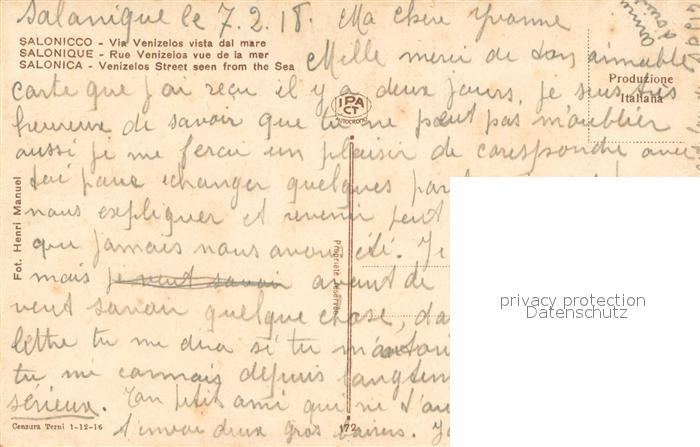 Salonique le 7.2.18. Ma chère Yvonne
SALONICCO - Via Venizelos vista dal mare
SALONIQUE - Rue Venizelos vue de la mer
SALONICA - Venizelos Street seen from the Sea
Mille merci de ton aimable
Produzione
Italiana
carte que j'ai reçu il y a deux jours, je suis très
IPA
CT
AUTOCROMO
heureux de savoir que tu ne peut pas m'oublier
aussi je me fercu un plaisir de corespondre avec
toi pour echanger quelques
nous expliquer et revenir peut
que jamais nous avons été. Je
mais je veut savoir avent de
veut savoir quelque chose, da
lettre tu me dira si tu m'autori
tu me connais depuis longtem
sérieux. Ton petit ami qui ne t'ou
t'envoi deux gros baisers.
Fot. Henri Manuel
Proprietà riservata
Censura Terni 1-12-16
172
privacy protection
Datenschutz